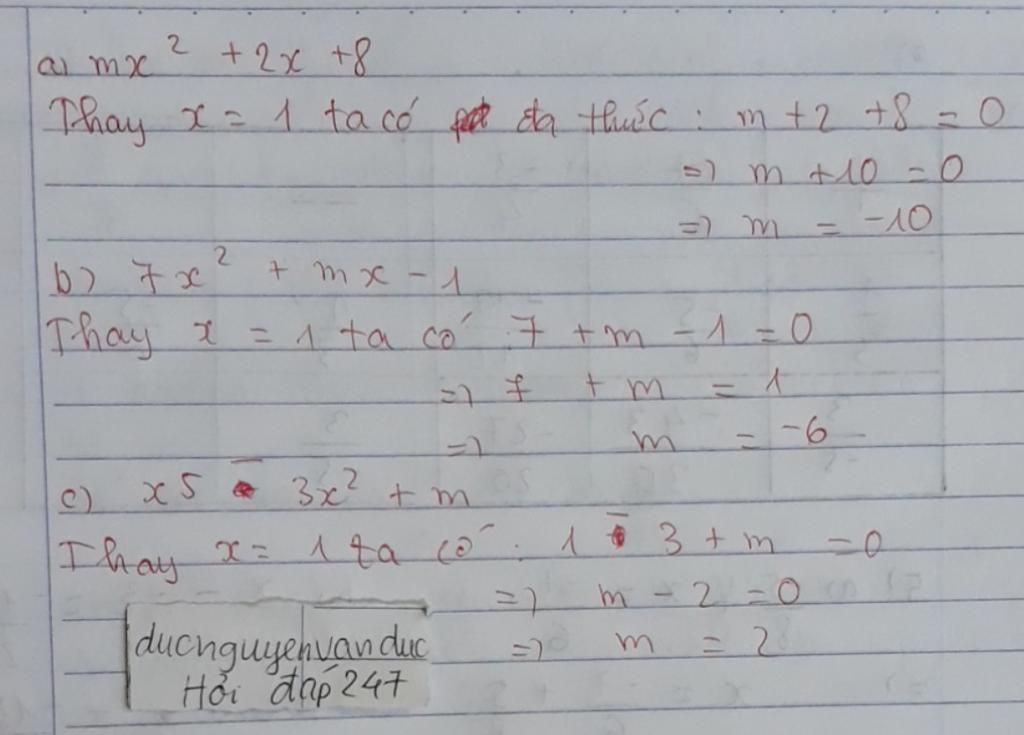 a) mx² + 2x + 8
Thay x = 1 ta có đa thức : m + 2 + 8 = 0
=> m + 10 = 0
=> m = -10
b) 7x² + mx - 1
Thay x = 1 ta có 7 + m - 1 = 0
=> 7 + m = 1
=> m = -6
c) x5 - 3x² + m
Thay x = 1 ta có : 1 - 3 + m = 0
=> m - 2 = 0
=> m = 2
ducnguyenvanduc
Hỏi đáp 247